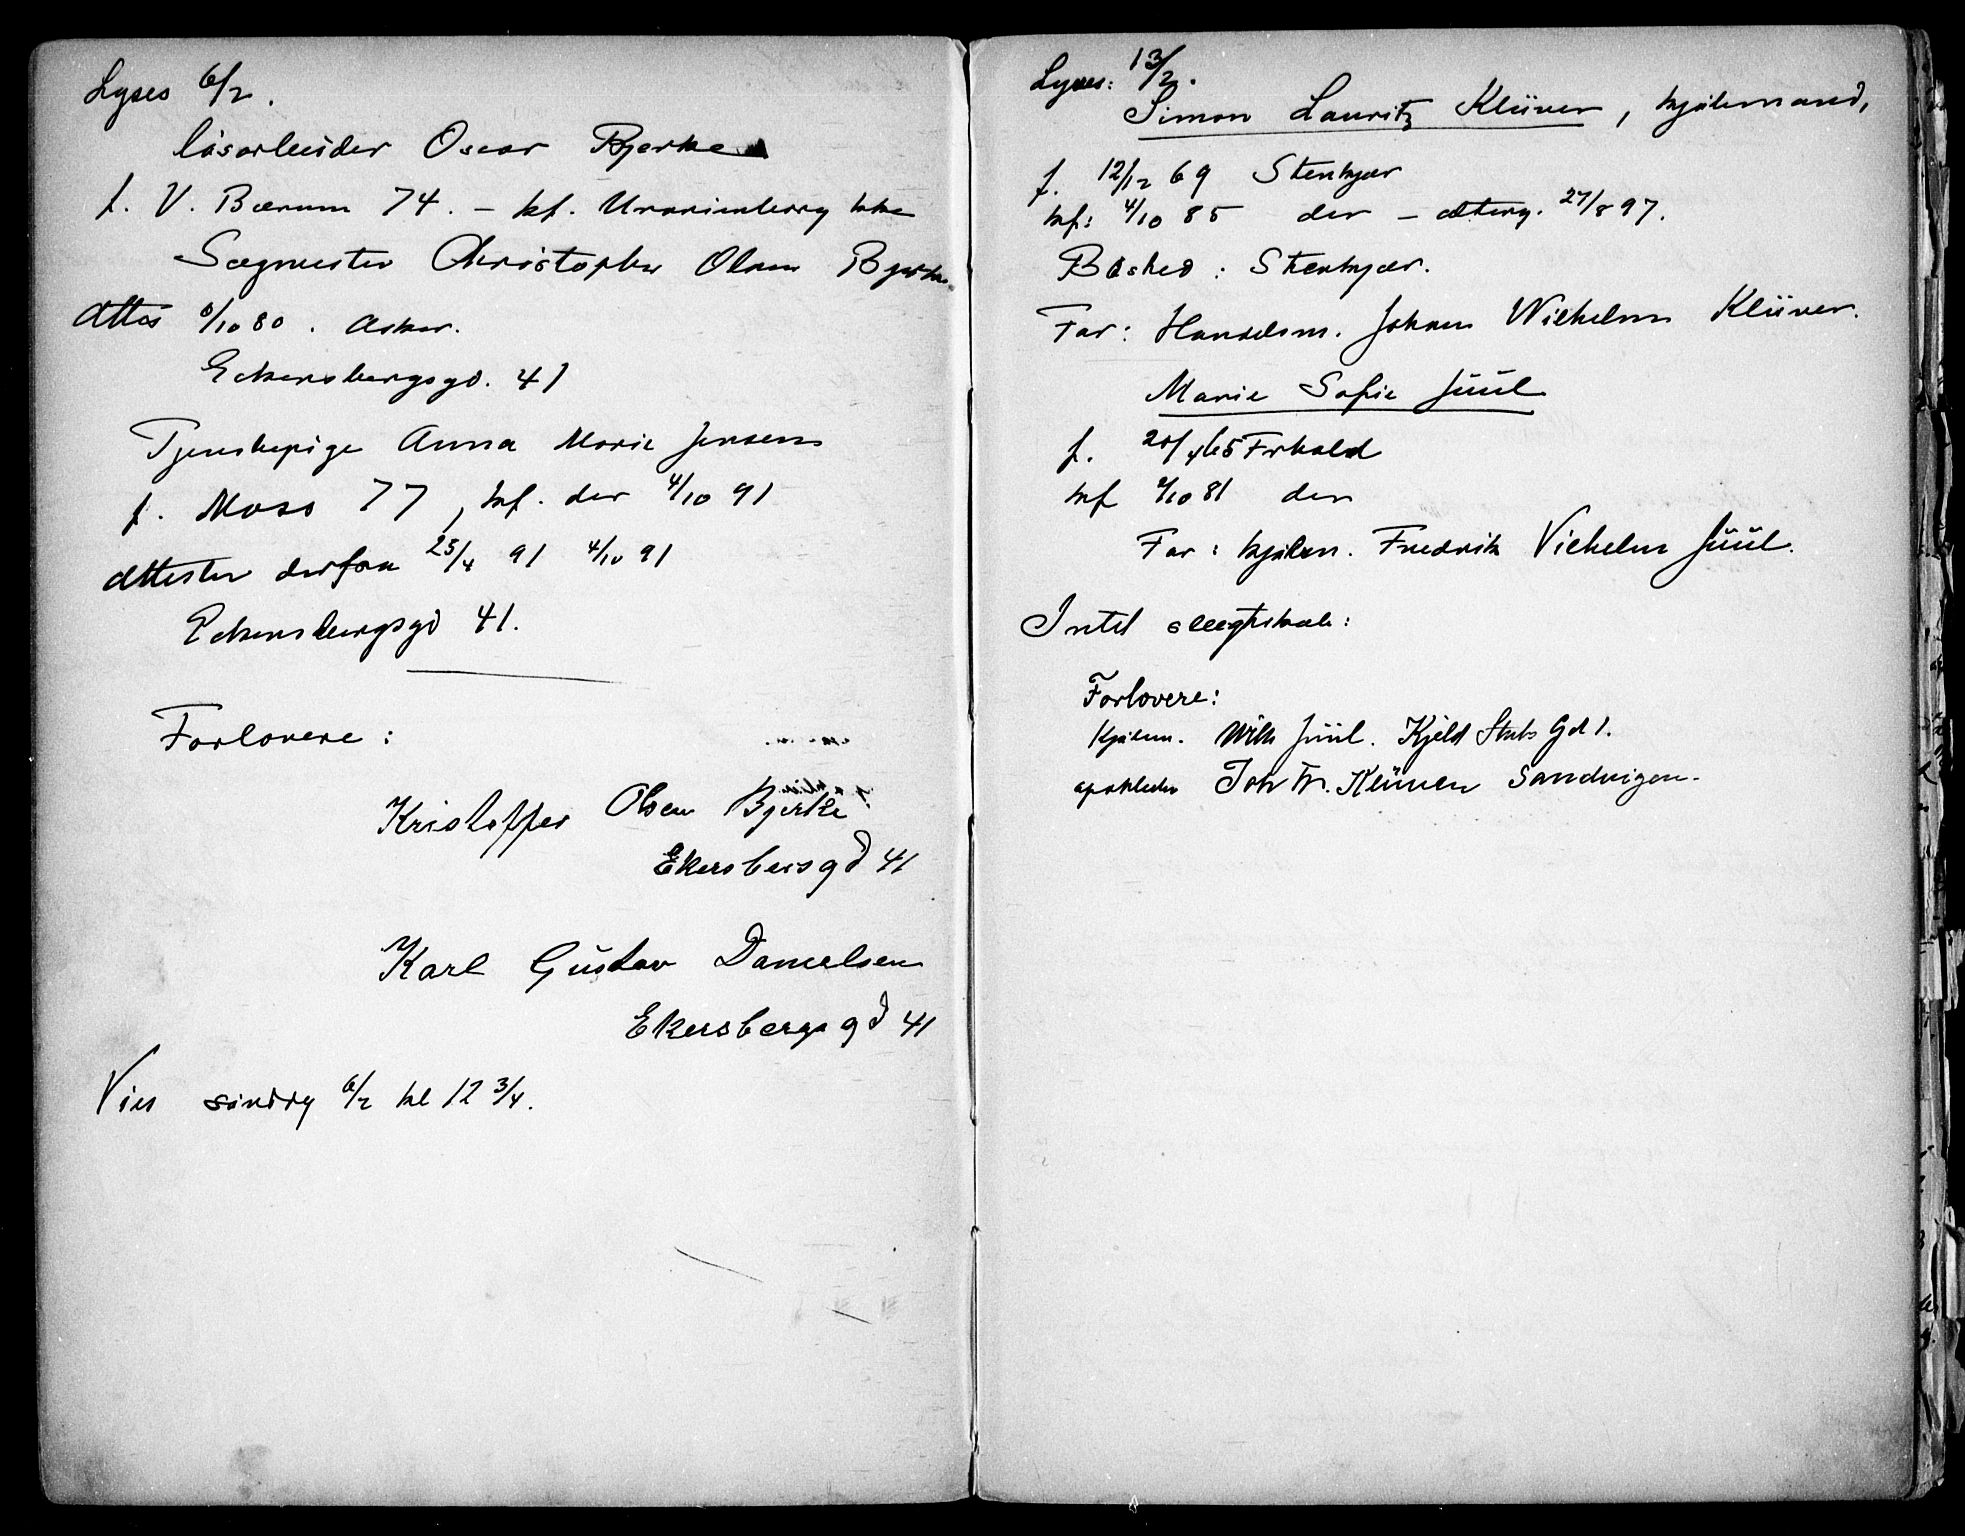 Lyses 6/2.
løsarbeider Oscar Bjerke
f. V. Bærum 74. – kf. Uranienborg kke
Sagmester Christopher Olsen Bjerke
Attes /10 80. Asker.
Eckersbergsgd. 41
Tjenstepige Anna Marie Jensen
f. Moss 77, kf. der 4/10 91
Attester derfra 25/4 91 4/10 91
Eckersbergsgd 41.
Forlovere:
Kristoffer Olsen Bjerke
Ekersbersgd 41
Karl Gustav Danielsen
Ekersbergs gd 41
Vies søndag 6/2 kl 12 3/4.
Lyses: 13/2.
Simon Lauritz Klüver, kjøbmand,
f. 12/12 69 Stenkjær
kf: 4/10 85 der – 27/8 97.
Bosted: Stenkjær.
Far: Handelsm. Johan Wilhelm Klüver.
Marie Sofie Juul
f. 20/ 65 Frhald
kf /10 81 der
Far: kjøbm. Fredrik Vilhelm Juul.
Intet slegtskab:
Forlovere:
Kjøbm. Wilh Juul. Kjeld Stubs Gd 1.
Joh Fr. Klüver Sandvigen.